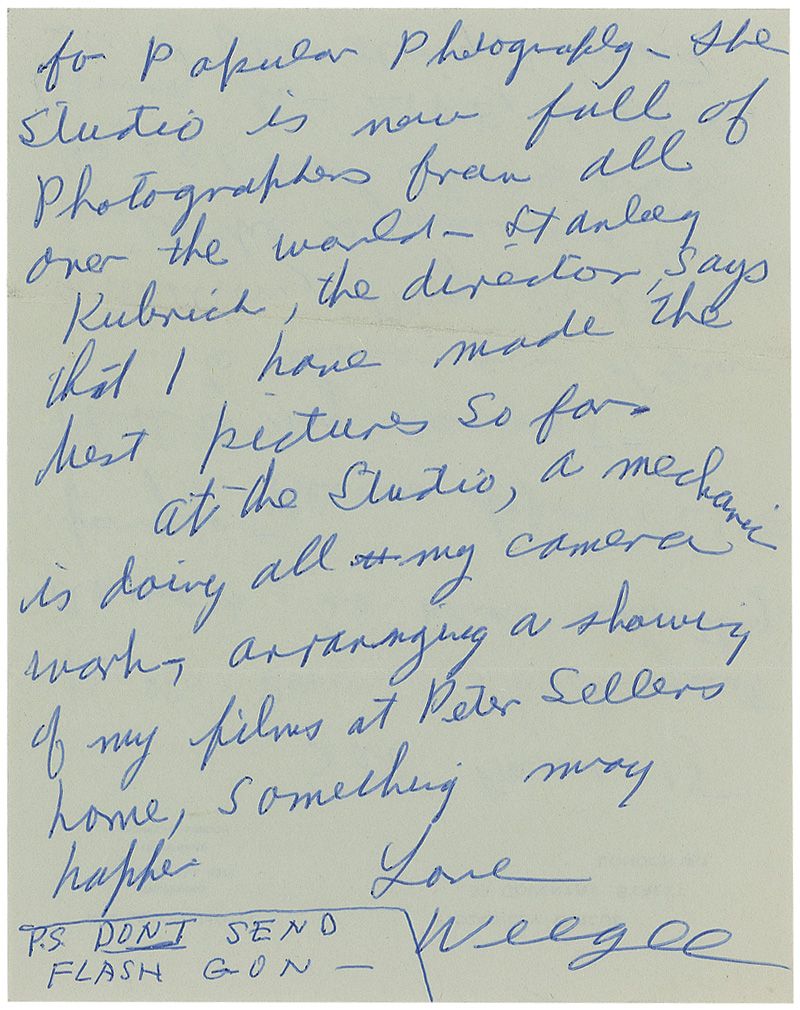 for Popular Photography - the
Studio is now full of
Photographers from all
over the world - Stanley
Kubrick, the director, says
that I have made the
best pictures so far
at the Studio, a mechanic
is doing all my camera
work, arranging a showing
of my films at Peter Sellers
home, something may
happen
Love
Weegee
P.S. DONT SEND
FLASH GON —